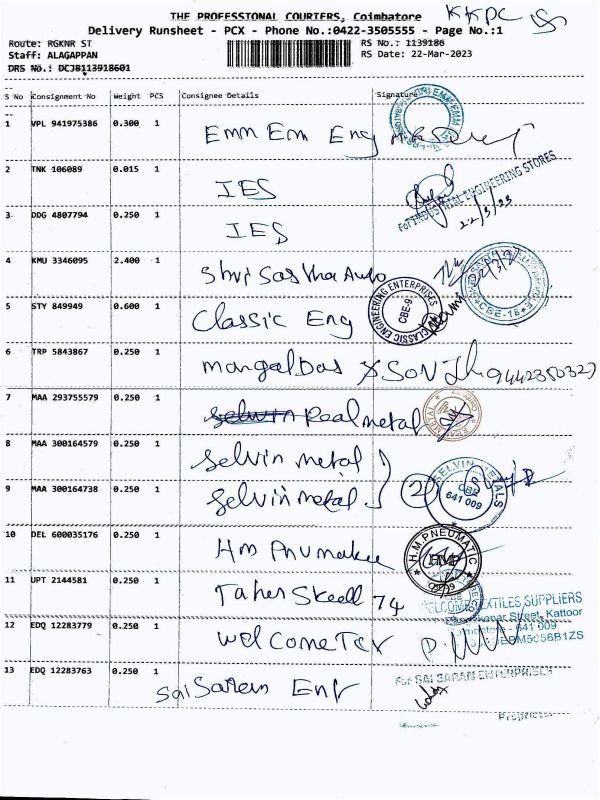 THE PROFESSIONAL COURIERS, Coimbatore
KKPC
Delivery Runsheet - PCX - Phone No.:0422-3505555 - Page No.:1
Route: RGKNR ST
RS No.: 1139186
Staff: ALAGAPPAN
RS Date: 22-Mar-2023
DRS No.: DCJB113918601
S No Consignment No Weight PCS Consignee Details Signature
1 VPL 941975386 0.300 1 Emm Em Eng
2 TNK 106089 0.015 1 IES
For INDUSTRIAL ENGINEERING STORES
22/3/23
3 DDG 4807794 0.250 1 IES
4 KMU 3346095 2.400 1 Shri Sastha Auto
CBE-18
5 STY 849949 0.600 1 Classic Eng
CLASSIC ENGINEERING ENTERPRISES CBE-9
6 TRP 5843867 0.250 1 mangalDas & SON
7 MAA 293755579 0.250 1 Selwin Realmetal
8 MAA 300164579 0.250 1 Selvin metal
9 MAA 300164738 0.250 1 Selvin metal
(2)
SELVIN METALS CBE 641 009
10 DEL 600035176 0.250 1
H.M. PNEUMATIC HMP
11 UPT 2144581 0.250 1 Taher 74
WELCOME TEXTILES SUPPLIERS
Street, Kattoor
641 009
12 EDQ 12283779 0.250 1 welcome Tex
13 EDQ 12283763 0.250 1 Sai Saren Ent
For SAI SARAN ENTERPRISES
Proprietor